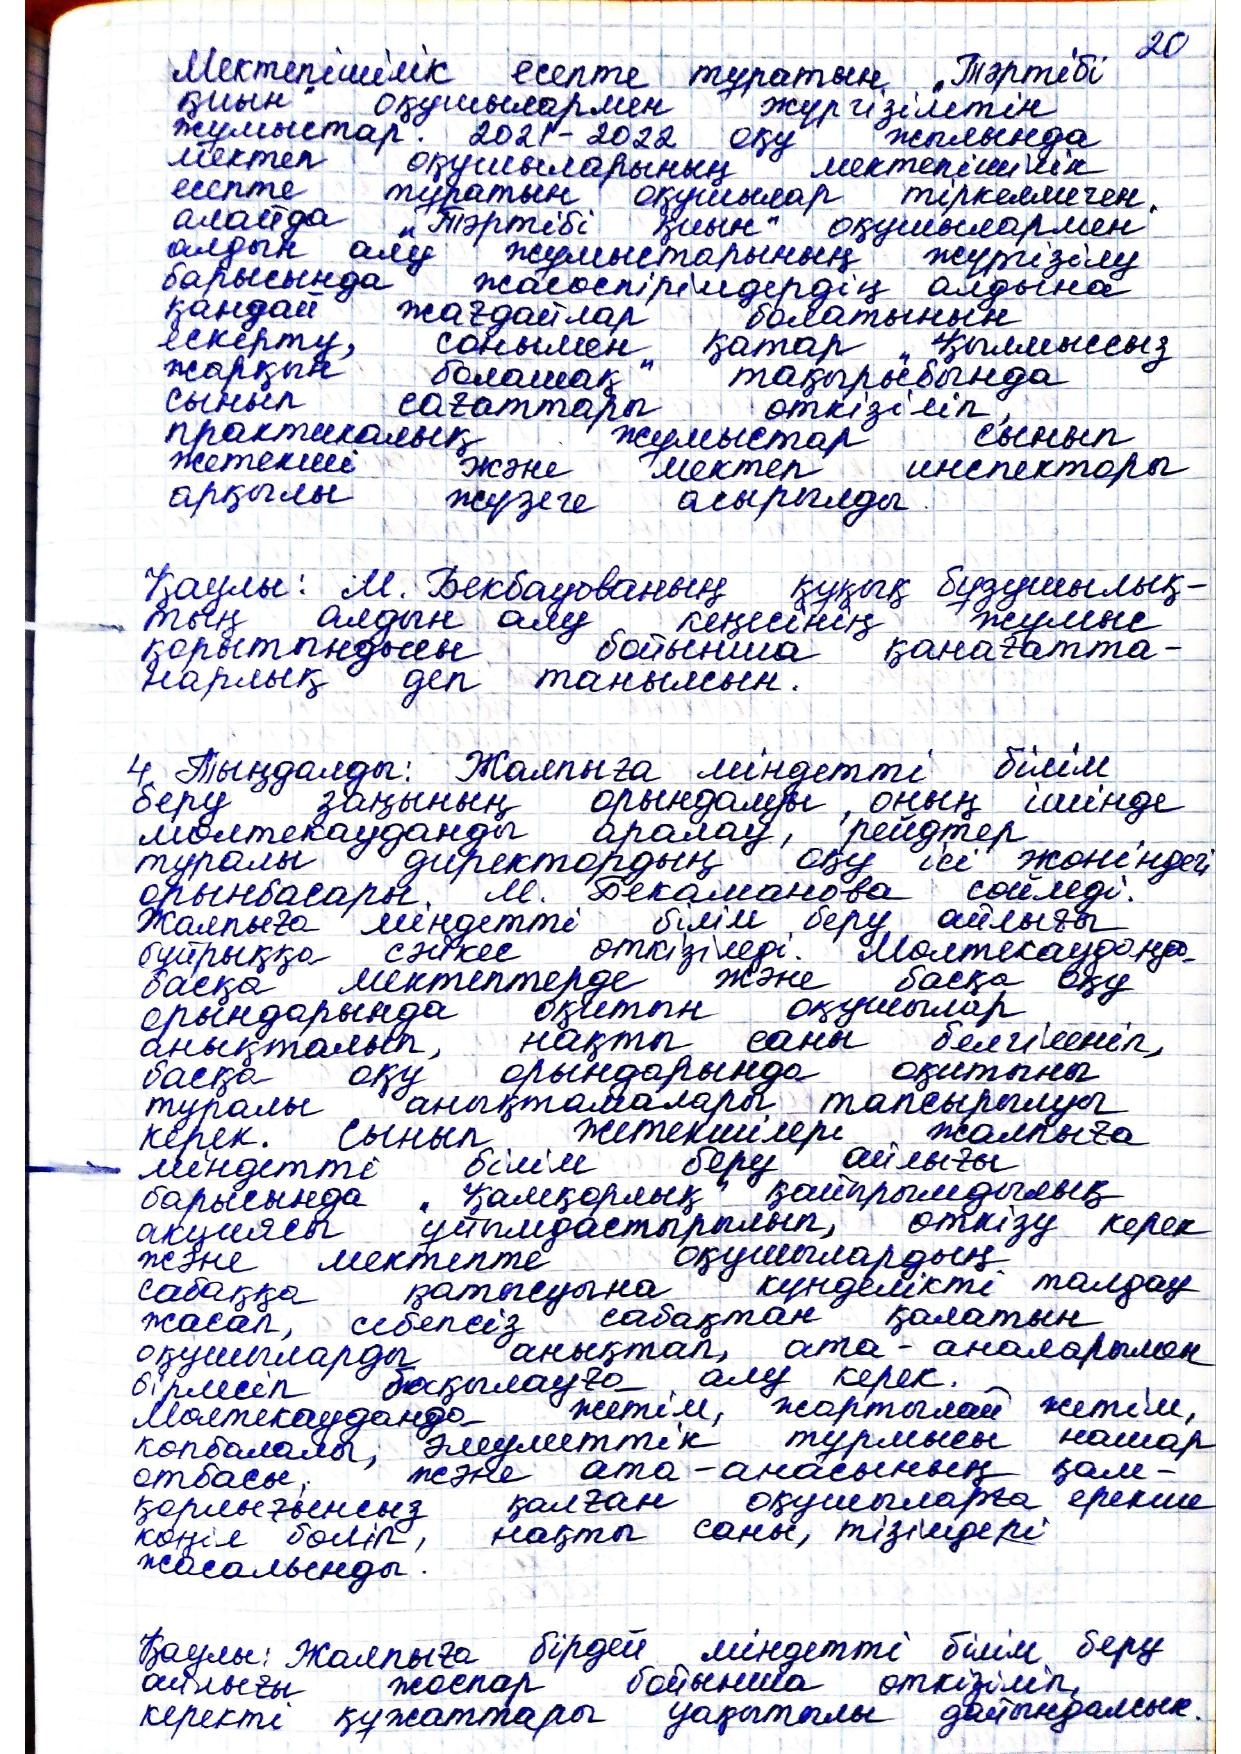 20
Мектепішілік есепте тұратын „Тәртібі
қиын" оқушылармен жүргізілетін
жұмыстар. 2021-2022 оқу жылында
мектеп оқушыларының мектепішілік
есепте тұратын оқушылар тіркелмеген,
алайда „Тәртібі қиын" оқушылармен
алдын алу жұмыстарының жүргізілу
барысында жасөспірімдердің алдына
қандай жағдайлар болатынын
ескерту, сонымен қатар „Қылмыссыз
жарқын болашақ" тақырыбында
сынып сағаттары өткізіліп,
практикалық жұмыстар сынып
жетекші және мектеп инспекторы
арқылы жүзеге асырылды.
Қаулы: М. Бекбауованың құқық бұзушылық-
тың алдын алу кеңесінің жұмыс
қорытындысы бойынша қанағатта-
нарлық деп танылсын.
4. Тыңдалды: Жалпыға міндетті білім
беру заңының орындалуы, оның ішінде
мөлтекауданды аралау, рейдтер
туралы директордың оқу ісі жөніндегі
орынбасары М. Бекаманова сөйледі.
Жалпыға міндетті білім беру айлығы
бұйрыққа сәйкес өткізіледі. Мөлтекауданда
басқа мектептерде және басқа оқу
орындарында оқитын оқушылар
анықталып, нақты саны белгіленіп,
басқа оқу орындарында оқитыны
туралы анықтамалары тапсырылуы
керек. Сынып жетекшілері жалпыға
міндетті білім беру айлығы
барысында „Қамқорлық" қайырымдылық
акциясы ұйымдастырылып, өткізу керек
және мектепте оқушылардың
сабаққа қатысуына күнделікті талдау
жасап, себепсіз сабақтан қалатын
оқушыларды анықтап, ата-аналарымен
бірлесіп бақылауға алу керек.
Мөлтекауданда жетім, жартылай жетім,
көпбалалы, әлеуметтік тұрмысы нашар
отбасы, және ата-анасының қам-
қорлығынсыз қалған оқушыларға ерекше
көңіл бөліп, нақты саны, тізімдері
жасалынды.
Қаулы: Жалпыға бірдей міндетті білім беру
айлығы жоспар бойынша өткізіліп,
керекті құжаттары уақытылы дайындалсын.